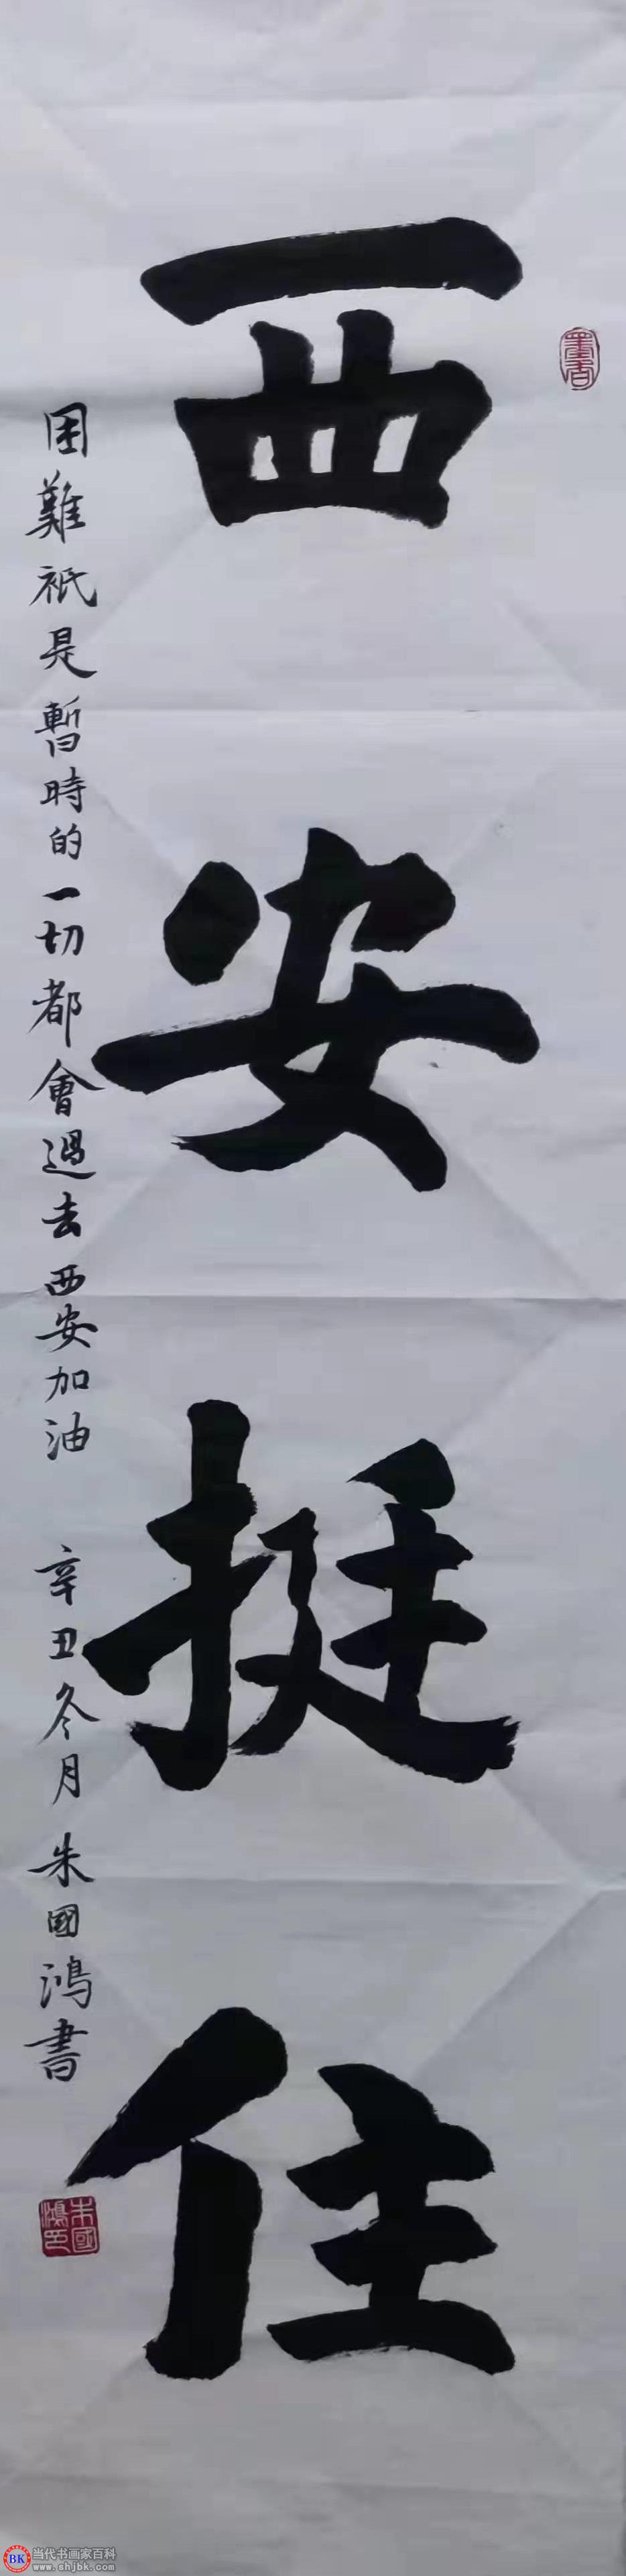 西安挺住
困難祇是暫時的一切都會過去西安加油 辛丑冬月朱國鴻書
朱國鴻印
当代书画家百科
www.shjbk.com